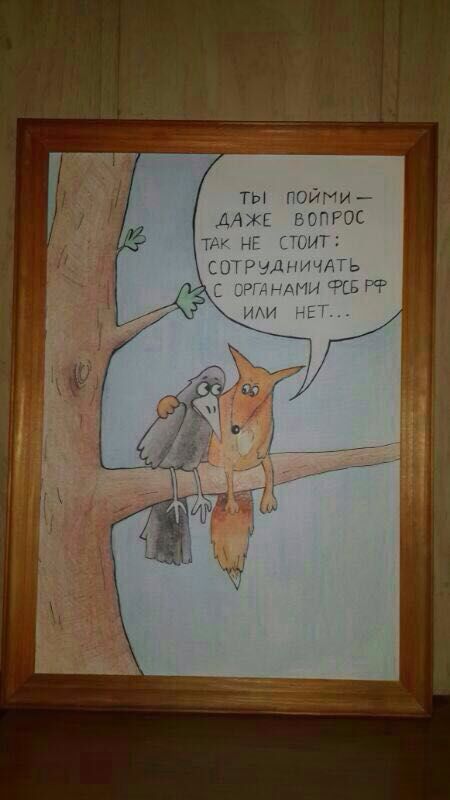 ТЫ ПОЙМИ —
ДАЖЕ ВОПРОС
ТАК НЕ СТОИТ:
СОТРУДНИЧАТЬ
С ОРГАНАМИ ФСБ РФ
ИЛИ НЕТ...